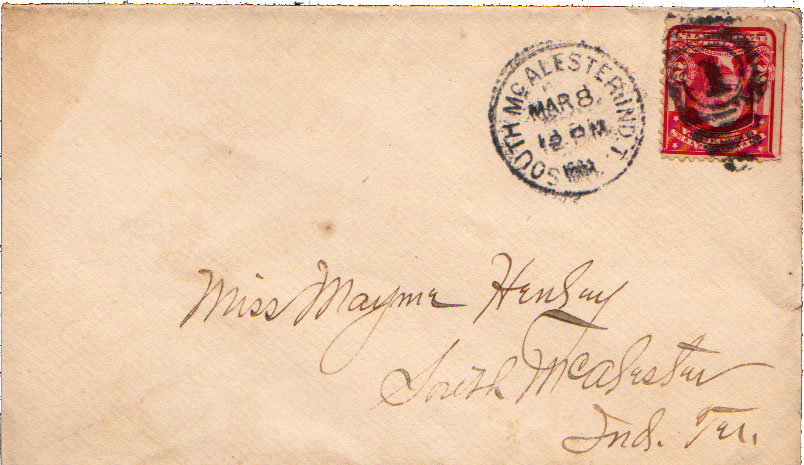 SOUTH McALESTER, IND. T.
MAR 8
12 PM
Miss Mayme Henley
South McAlester
Ind. Ter.